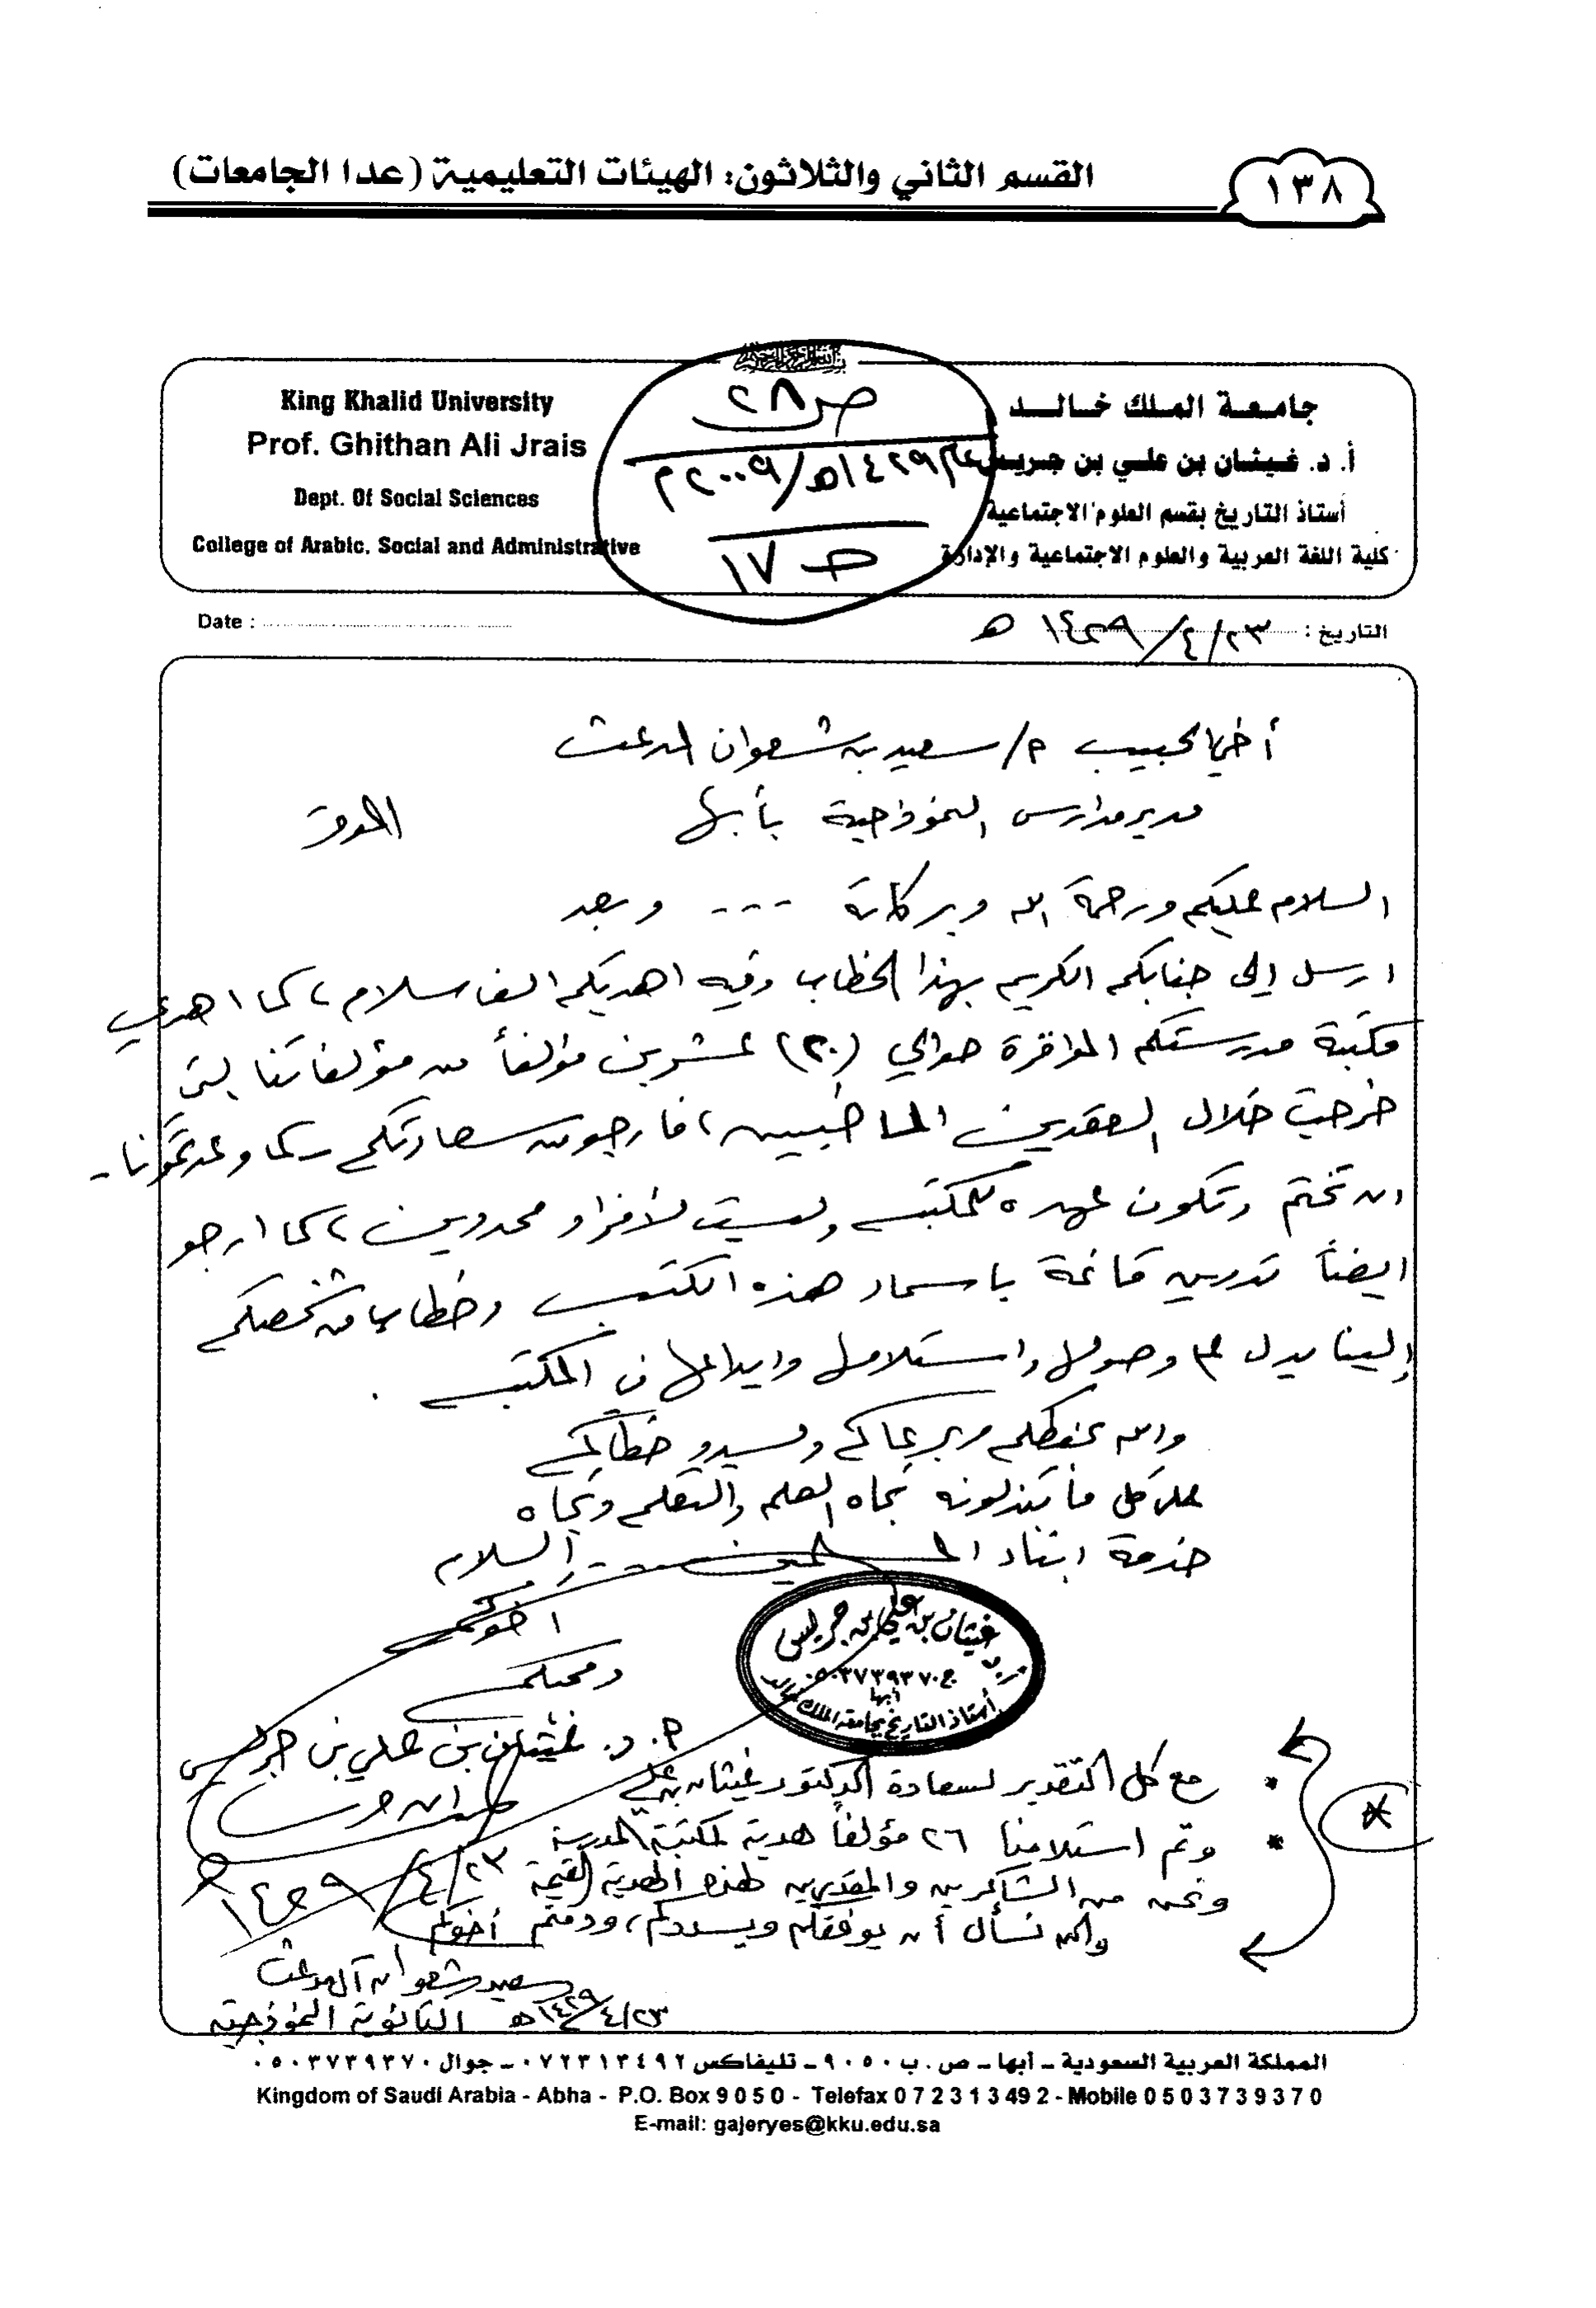 القسم الثاني والثلاثون: الهيئات التعليمية (عدا الجامعات)
١٣٨
جامعة الملك خالد
أ. د. غيثان بن علي بن جريس
أستاذ التاريخ بقسم العلوم الاجتماعية
كلية اللغة العربية والعلوم الاجتماعية والإدارة
King Khalid University
Prof. Ghithan Ali Jrais
Dept. Of Social Sciences
College of Arabic, Social and Administrative
ص ٢٨
عام ١٤٢٩هـ/٢٠٠٩م
ح ١٧
التاريخ: ٢٣/٤/١٤٢٩ هـ
Date :
أخي الحبيب م/ سعيد بن شعوان
مدير مدارس النموذجية بأبها الموقر
السلام عليكم ورحمة الله وبركاته --- وبعد
ارسل إلى جنابكم الكريم بهذا الخطاب وفيه اهديكم الف سلام، كما اهدي
مكتبة مدرستكم الموقرة حوالي (٢٠) عشرين مؤلفاً من مؤلفاتنا التي
خرجت خلال العقدين الماضيين، فارجو من سعادتكم - كما وعدتمونا -
ان تختم وتكون عهده للمكتبه وليست لأفراد محدودين، كما ارجو
ايضاً تدوين قائمة باسماء هذه الكتب وخطاباً من شخصكم
إلينا يدل على وصولها واستلامها وايداعها في المكتبه .
والله يحفظكم ويرعاكم ويسدد خطاكم
على كل ما تبذلونه تجاه العلم والتعلم وتجاه
خدمة ابناء المسلمين -- والسلام
اخوكم
ومحبكم
أ. د. غيثان بن علي بن جريس
٢٣/٤/١٤٢٩هـ
أ.د غيثان بن علي بن جريس
ج ٠٥٠٣٧٣٩٣٧٠
أبها
أستاذ التاريخ بجامعة الملك خالد
* مع كل التقدير لسعادة الدكتور غيثان بن علي
* وتم استلامنا ٢٦ مؤلفاً هدية لمكتبة المدرسة
ونحن من الشاكرين والمقدرين لهذه الهدية القيمة
والله نسأل أن يوفقكم ويسددكم، ودمتم أخوكم
سعيد شعوان آل
٢٣/٤/١٤٢٩هـ الثانوية النموذجية
المملكة العربية السعودية - أبها - ص. ب ٩٠٥٠ - تليفاكس ٠٧٢٣١٣٤٩٢ - جوال ٠٥٠٣٧٣٩٣٧٠
Kingdom of Saudi Arabia - Abha - P.O. Box 9 0 5 0 - Telefax 0 7 2 3 1 3 49 2 - Mobile 0 5 0 3 7 3 9 3 7 0
E-mail: gajeryes@kku.edu.sa